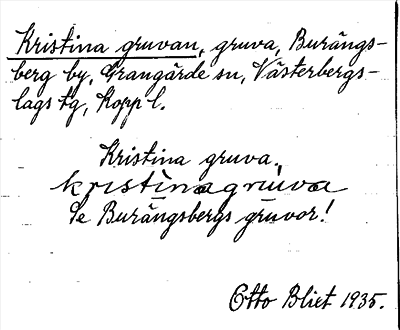 Kristina gruvan, gruva, Burängs-
berg by, Grangärde sn, Västerbergs-
lags tg, Kopp l.
Kristina gruva.
kristinagruva
Se Burängsbergs gruvor!
Otto Bliet 1935.